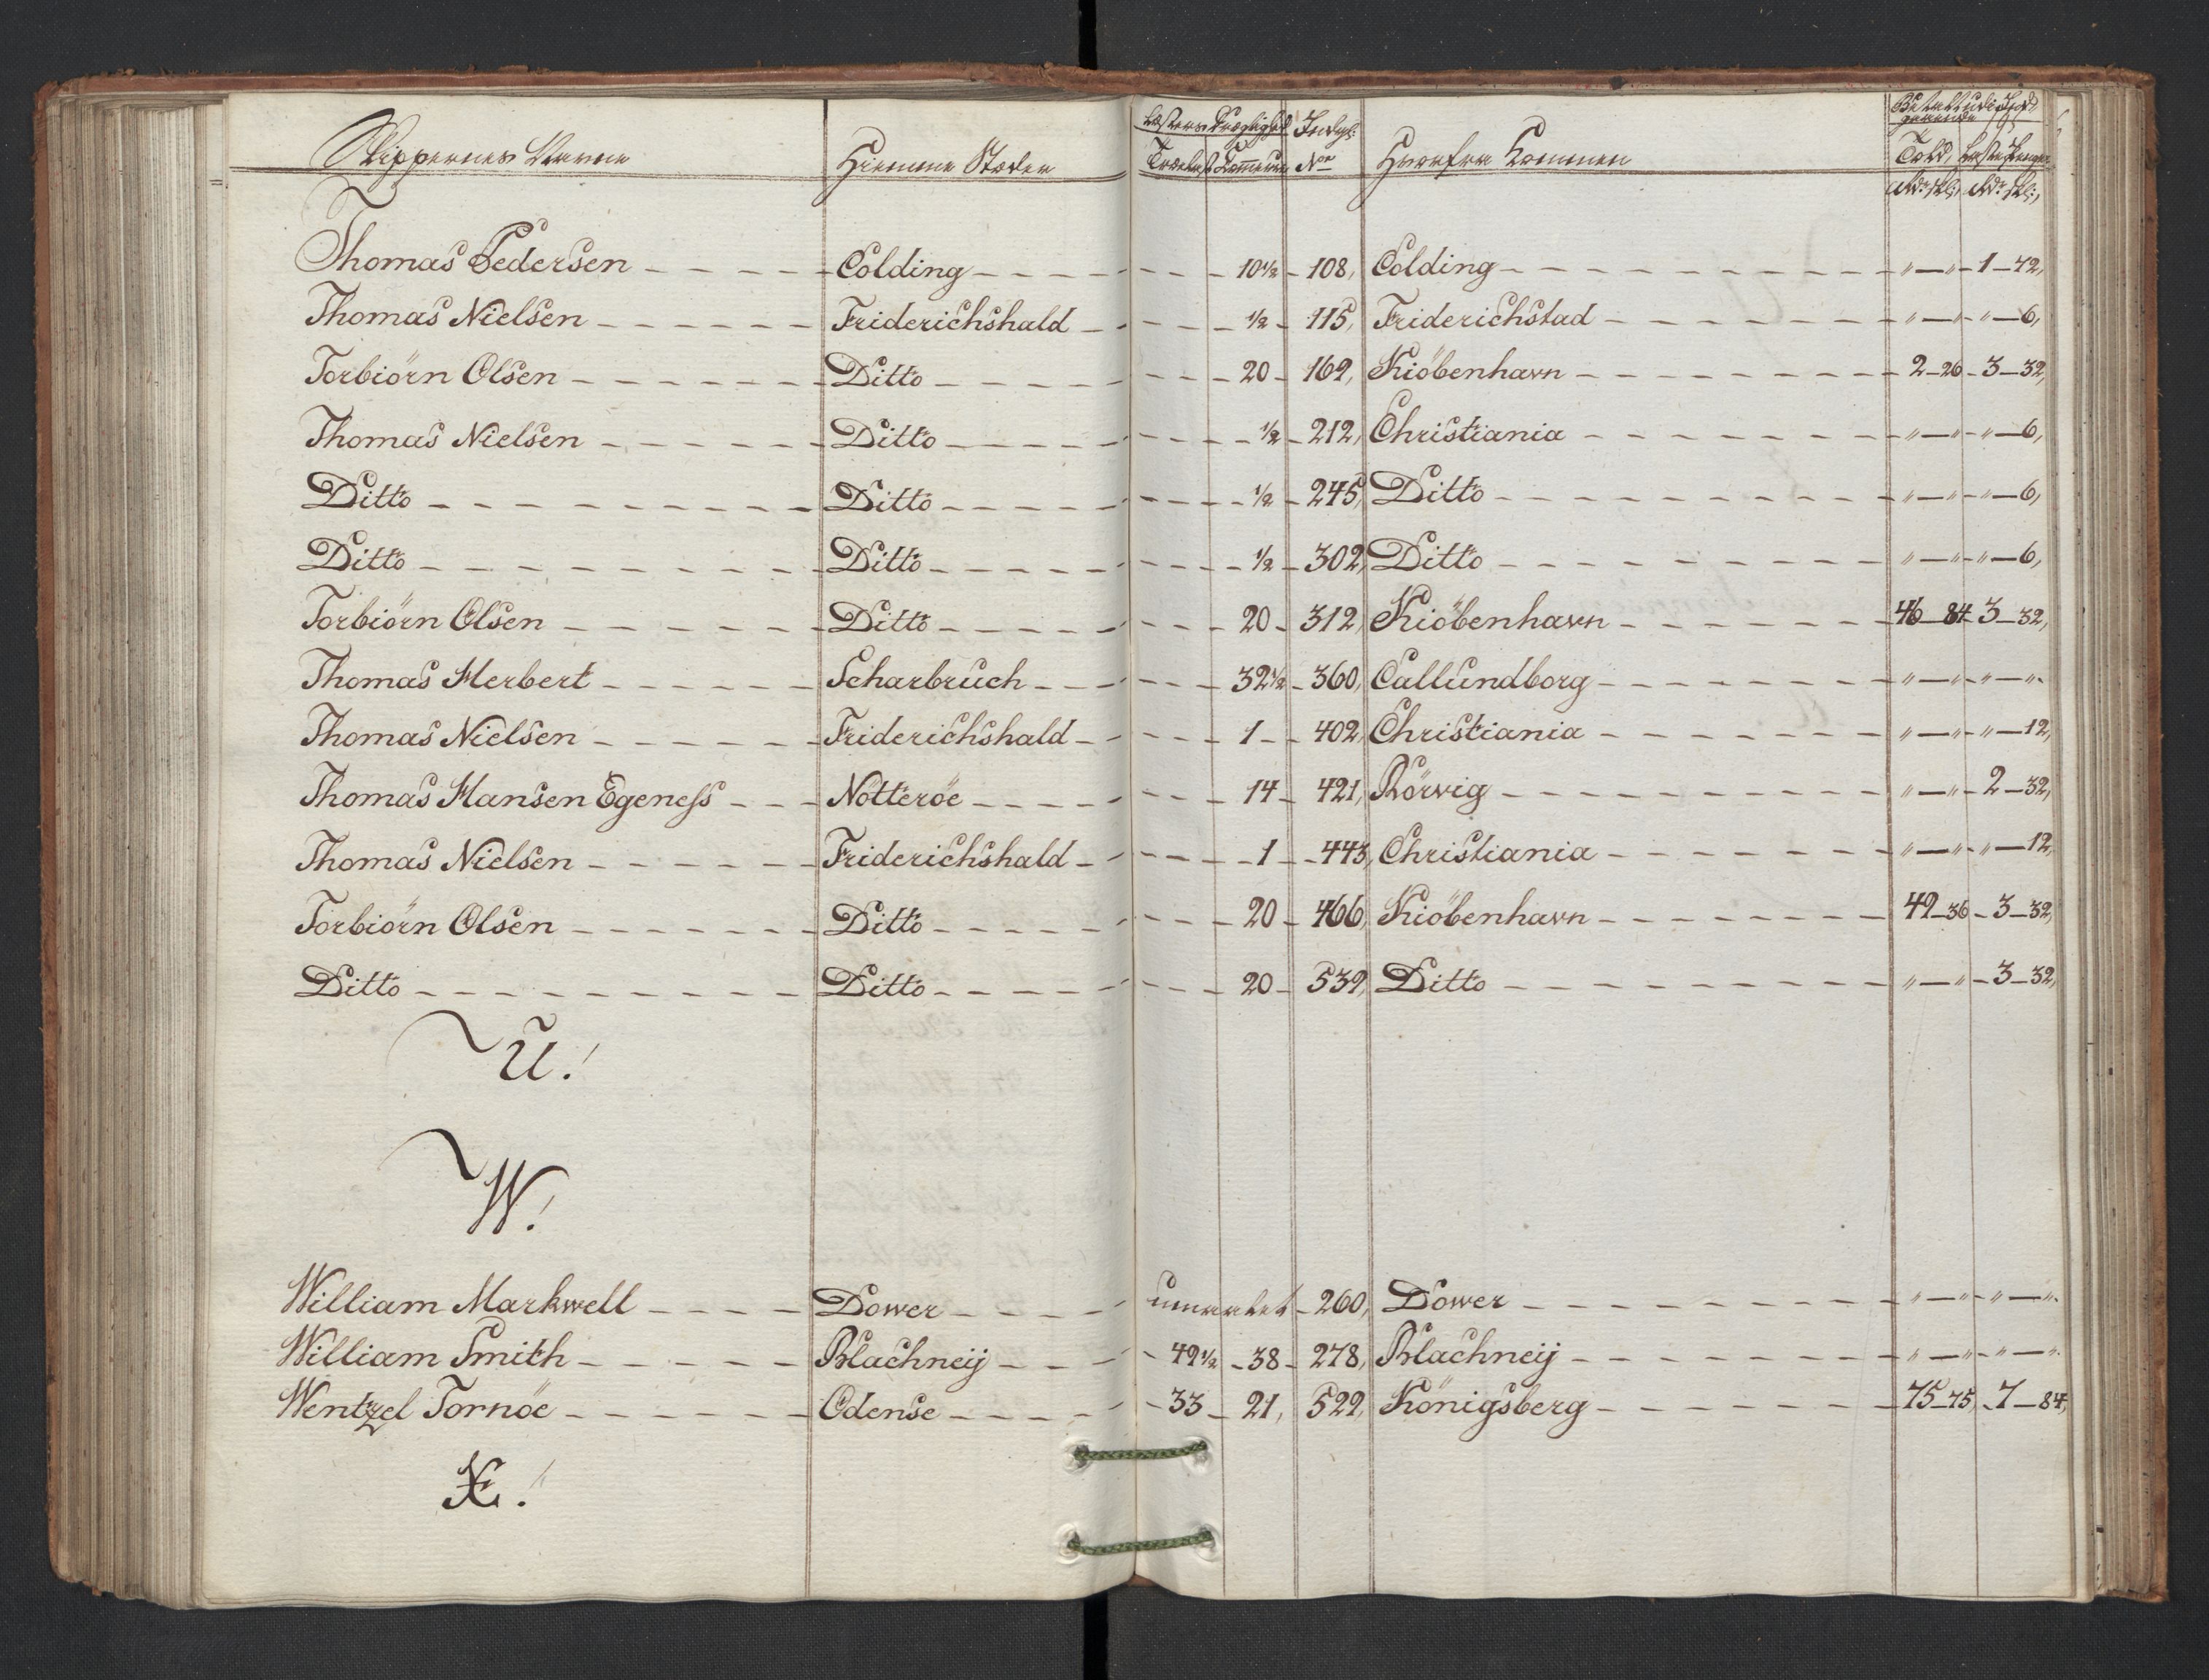 Skippernes Navne Hiemme Stæder Læsters Drægtighed Indgl: Hvorfra Kommen Betalt udi Indgaaende
Trælast Commerce No Told, Læstepenge
Rdr skl: Rdr skl:
T
Thomas Pedersen - - - - Colding - - - - 10½ - 108, Colding - - - - „ — „ - 1 - 72,
Thomas Nielsen - - - - Friderichshald - - - - ½ - 115, Friderichstad - - - - „ — „ - „ — 6,
Torbiörn Olsen - - - - Ditto - - - - 20 - 169, Kiöbenhavn - - - - 2 - 26 - 3 - 32,
Thomas Nielsen - - - - Ditto - - - - ½ - 212, Christiania - - - - „ — „ - „ — 6,
Ditto - - - - Ditto - - - - ½ - 245, Ditto - - - - „ — „ - „ — 6,
Ditto - - - - Ditto - - - - ½ - 302, Ditto - - - - „ — „ - „ — 6,
Torbiörn Olsen - - - - Ditto - - - - 20 - 312, Kiöbenhavn - - - - 46 - 84 - 3 - 32,
Thomas Herbert - - - - Scharbruch - - - - 32½ - 360, Callundborg - - - - „ — „ - „ — „
Thomas Nielsen - - - - Friderichshald - - - - 1 - 402, Christiania - - - - „ — „ - „ — 12,
Thomas Hansen Egeness - - - Notteröe - - - - 14 - 421, Rörvig - - - - „ — „ - 2 - 32,
Thomas Nielsen - - - - Friderichshald - - - - 1 - 443, Christiania - - - - „ — „ - „ — 12,
Torbiörn Olsen - - - - Ditto - - - - 20 - 466, Kiöbenhavn - - - - 49 - 36 - 3 - 32,
Ditto - - - - Ditto - - - - 20 - 539, Ditto - - - - „ — „ - 3 - 32,
U!
W!
William Markwell - - - - Dower - - - - umaalet - 260, Dower - - - - „ — „ - „ — „
William Smith - - - - Blachneij - - - - 49½ - 38 - 278, Blachneij - - - - „ — „ - „ — „
Wentzel Tornöe - - - - Odense - - - - 33 - 21, 529, Königsberg - - - - 75 - 75, - 7 - 84,
X!